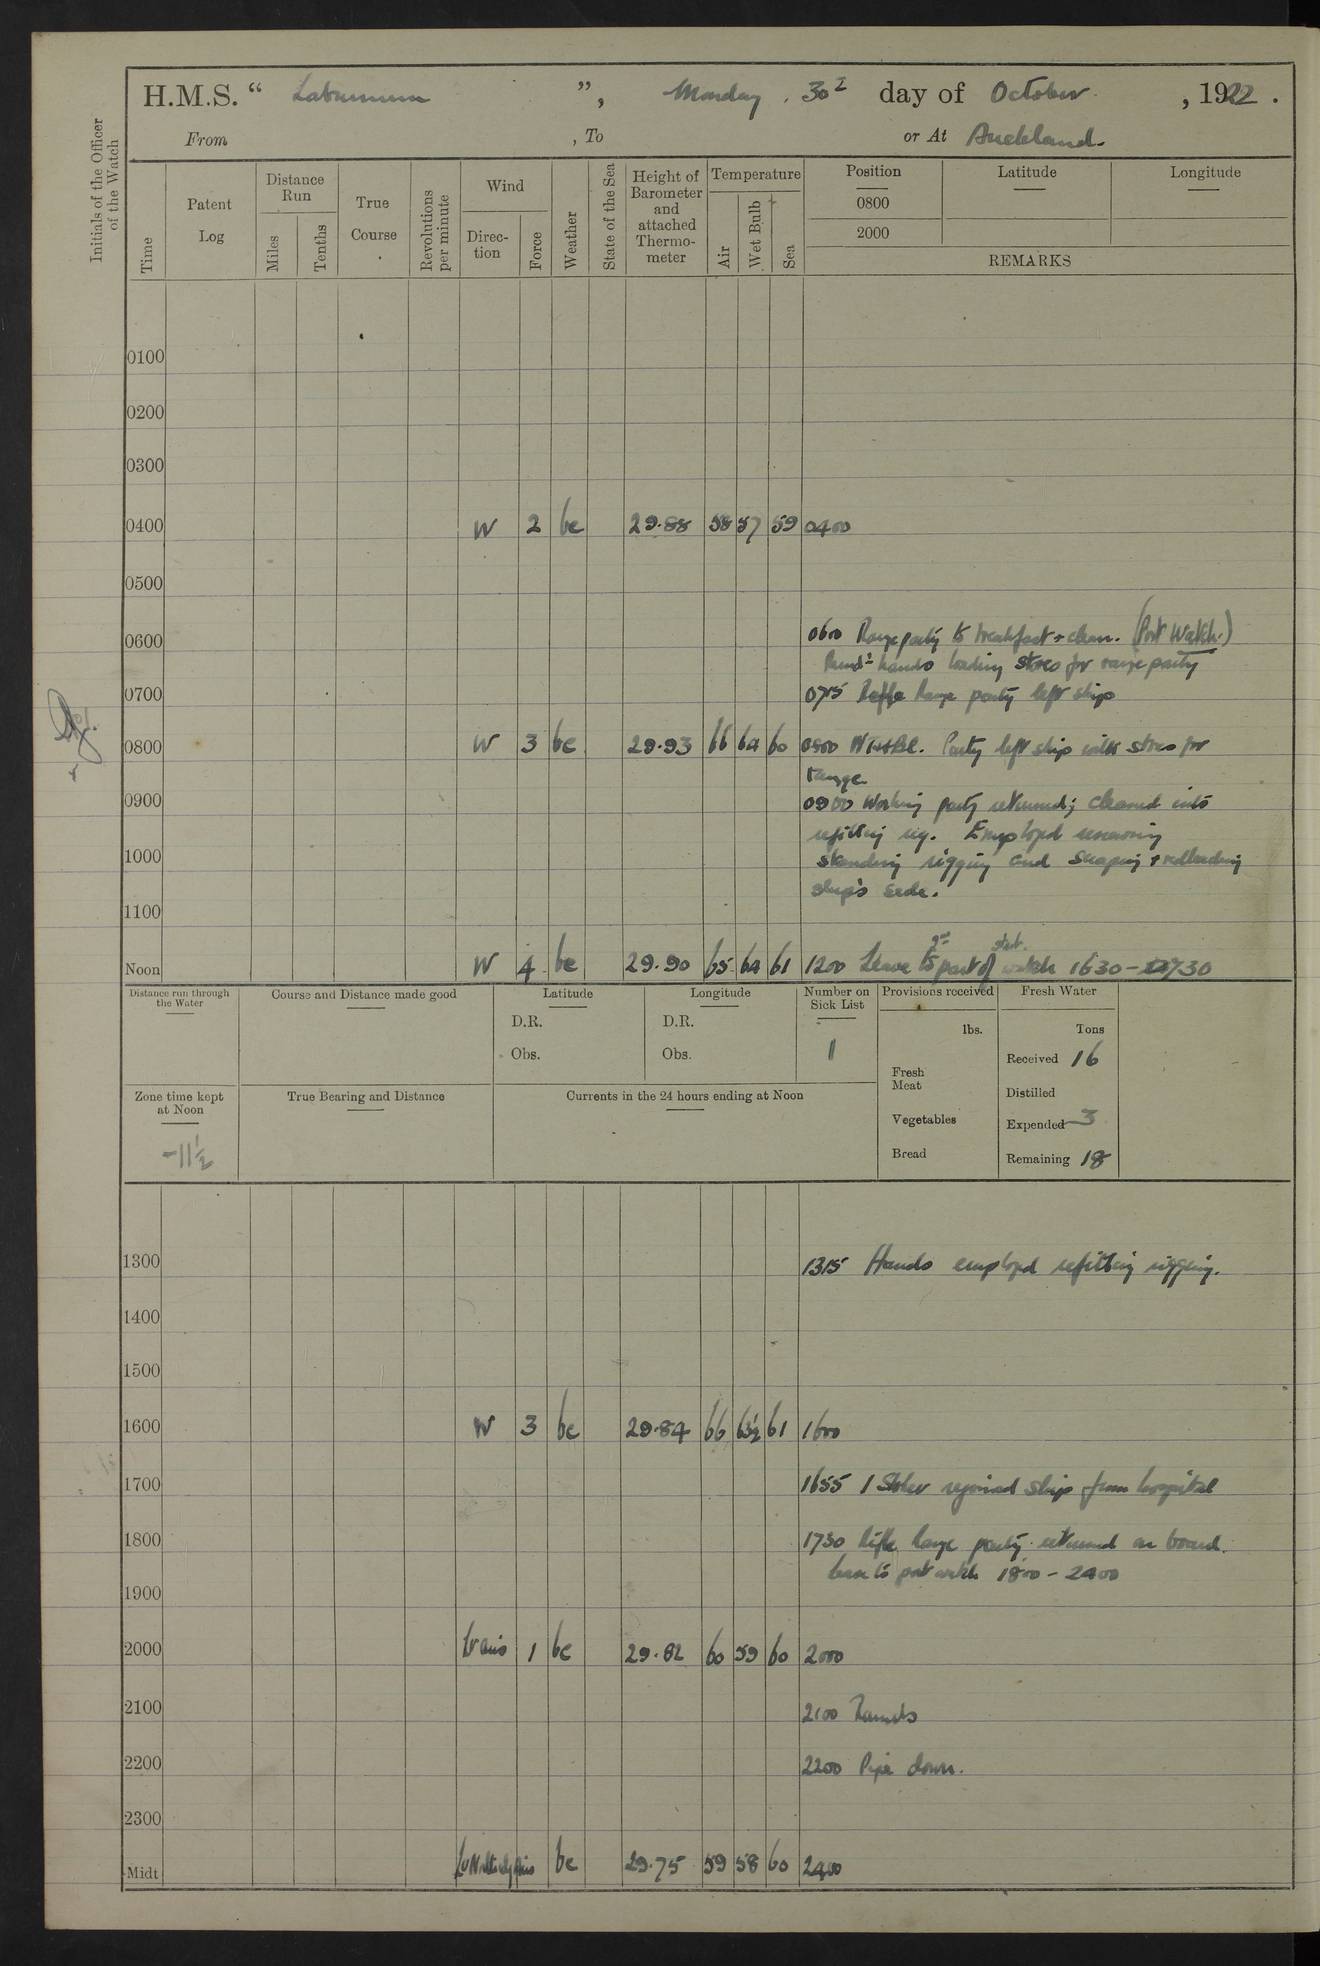 H.M.S. “ Laburnum ”, Monday, 30th day of October, 1922.
From , To or At Auckland.
Initials of the Officer of the Watch
Time
Patent Log
Distance Run
Miles
Tenths
True Course
Revolutions per minute
Wind
Direc-tion
Force
Weather
State of the Sea
Height of Barometer and attached Thermo-meter
Temperature
Air
Wet Bulb
Sea
Position
0800
2000
Latitude
Longitude
REMARKS
0100
0200
0300
0400 W 2 bc 29.88 58 57 59 0400
0500
0600 0600 Range party to breakfast + clean. (Port Watch.)
hands loading stores for range party
0700 0715 Rifle Range party left ship
0800 W 3 bc 29.93 66 64 60 0800 Party left ship with stores for
range
0900 0900 Working party returned; cleaned into
refitting rig. Employed renewing
1000 standing rigging and scraping + redleading
ship's side.
1100
2nd start.
Noon W 4 bc 29.90 65 64 61 1200 Leave to part of watch 1630 - 0730
Distance run through the Water
Course and Distance made good
Latitude
D.R.
Obs.
Longitude
D.R.
Obs.
Number on Sick List
11
Provisions received
lbs.
Fresh Meat
Vegetables
Bread
Fresh Water
Tons
Received 16
Distilled
Expended 3
Remaining 18
Zone time kept at Noon
-11½
True Bearing and Distance
Currents in the 24 hours ending at Noon
1300 1315 Hands employed refitting rigging.
1400
1500
1600 W 3 bc 29.84 66 63½ 61 1600
1700 1655 1 Stoker rejoined ship from hospital
1800 1730 Rifle Range party returned on board.
Leave to port watch 1800 - 2400
1900
2000 Lt airs 1 bc 29.82 60 59 60 2000
2100 2100 Rounds
2200 2200 Pipe down.
2300
Midt bc 29.75 59 58 60 2400